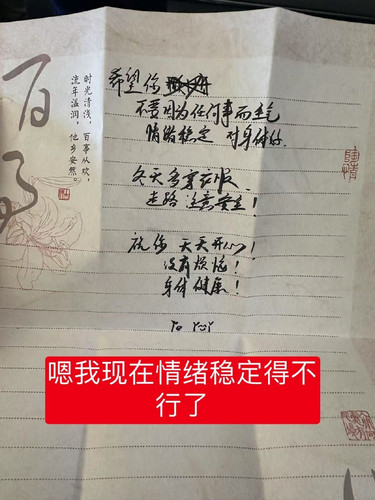 百事
时光清浅,百事从欢,
流年温润,他乡安然。
希望你
不要因为任何事而生气
情绪稳定 对身体好.
冬天多穿衣服
走路 注意安全!
祝你 天天开心!
没有烦恼!
身体健康!
陶情
嗯我现在情绪稳定得不
行了